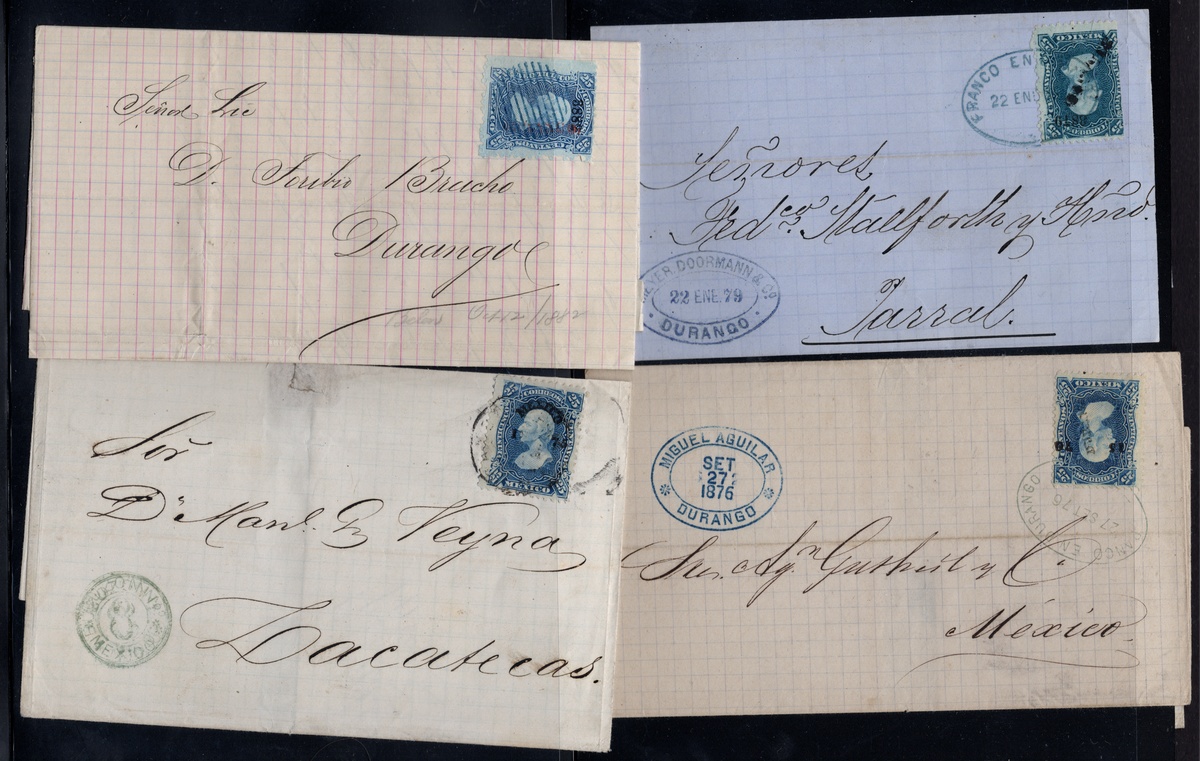 Señor Lic
D.
Bracho
Durango
1882
FRANCO EN
22 ENE
Señores
Fedco. Stallforth y Hno.
Parral.
DOORMANN & Co
22 ENE. 79
DURANGO
CORREOS
MEXICO
Sor
Dn Manl. G Veyna
Zacatecas.
8
MEXICO
MEXICO
MIGUEL AGUILAR
SET
27
1876
DURANGO
FRANCO EN DURANGO
27 SET 76
Sres. Agn Gutheil y Ca.
México.